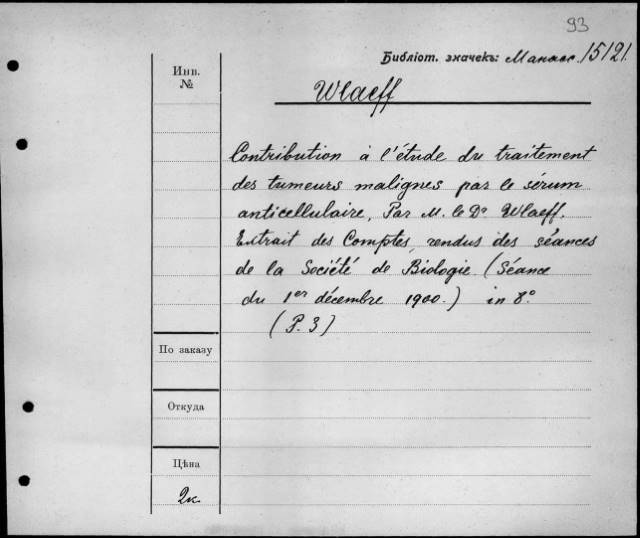 93
Библіот. значекъ: Манасс. 15121.
Инв.
№
Wlaeff
Contribution à l'étude du traitement
des tumeurs malignes par le sérum
anticellulaire, Par M. le Dr Wlaeff.
Extrait des Comptes rendus des séances
de la Société de Biologie (Séance
du 1er décembre 1900.) in 8°
(P. 3)
По заказу
Откуда
Цѣна
2к.